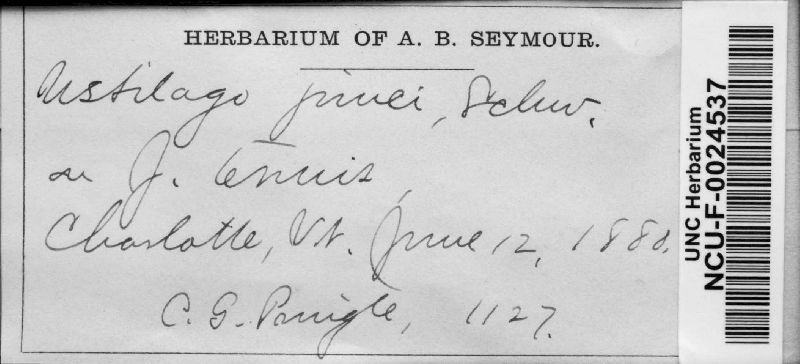 HERBARIUM OF A. B. SEYMOUR.
Ustilago junci, Schw.
on J. tenuis,
Charlotte, Vt. June 12, 1880.
C. G. Pringle, 1127.
UNC Herbarium
NCU-F-0024537